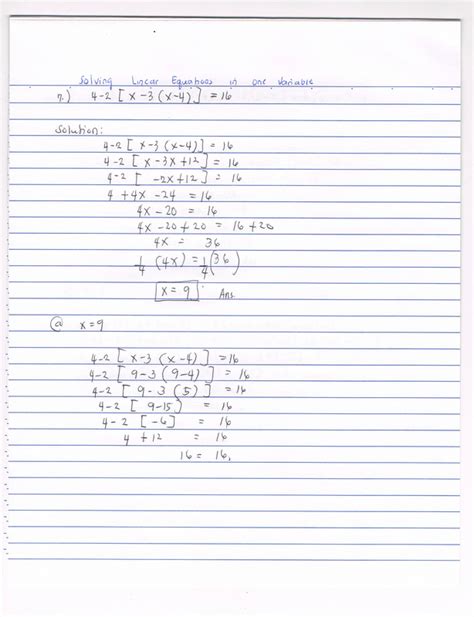 Solving Linear Equations in one variable
7.) 4-2 [ x-3 (x-4) ] = 16
Solution:
4-2 [ x-3 (x-4) ] = 16
4-2 [ x-3x+12 ] = 16
4-2 [ -2x+12 ] = 16
4 + 4x - 24 = 16
4x - 20 = 16
4x - 20 + 20 = 16 + 20
4x = 36
1/4 (4x) = 1/4 (36)
x = 9 Ans.
@ x = 9
4-2 [ x-3 (x-4) ] = 16
4-2 [ 9-3 (9-4) ] = 16
4-2 [ 9-3 (5) ] = 16
4-2 [ 9-15 ) = 16
4-2 [ -6 ] = 16
4 + 12 = 16
16 = 16.